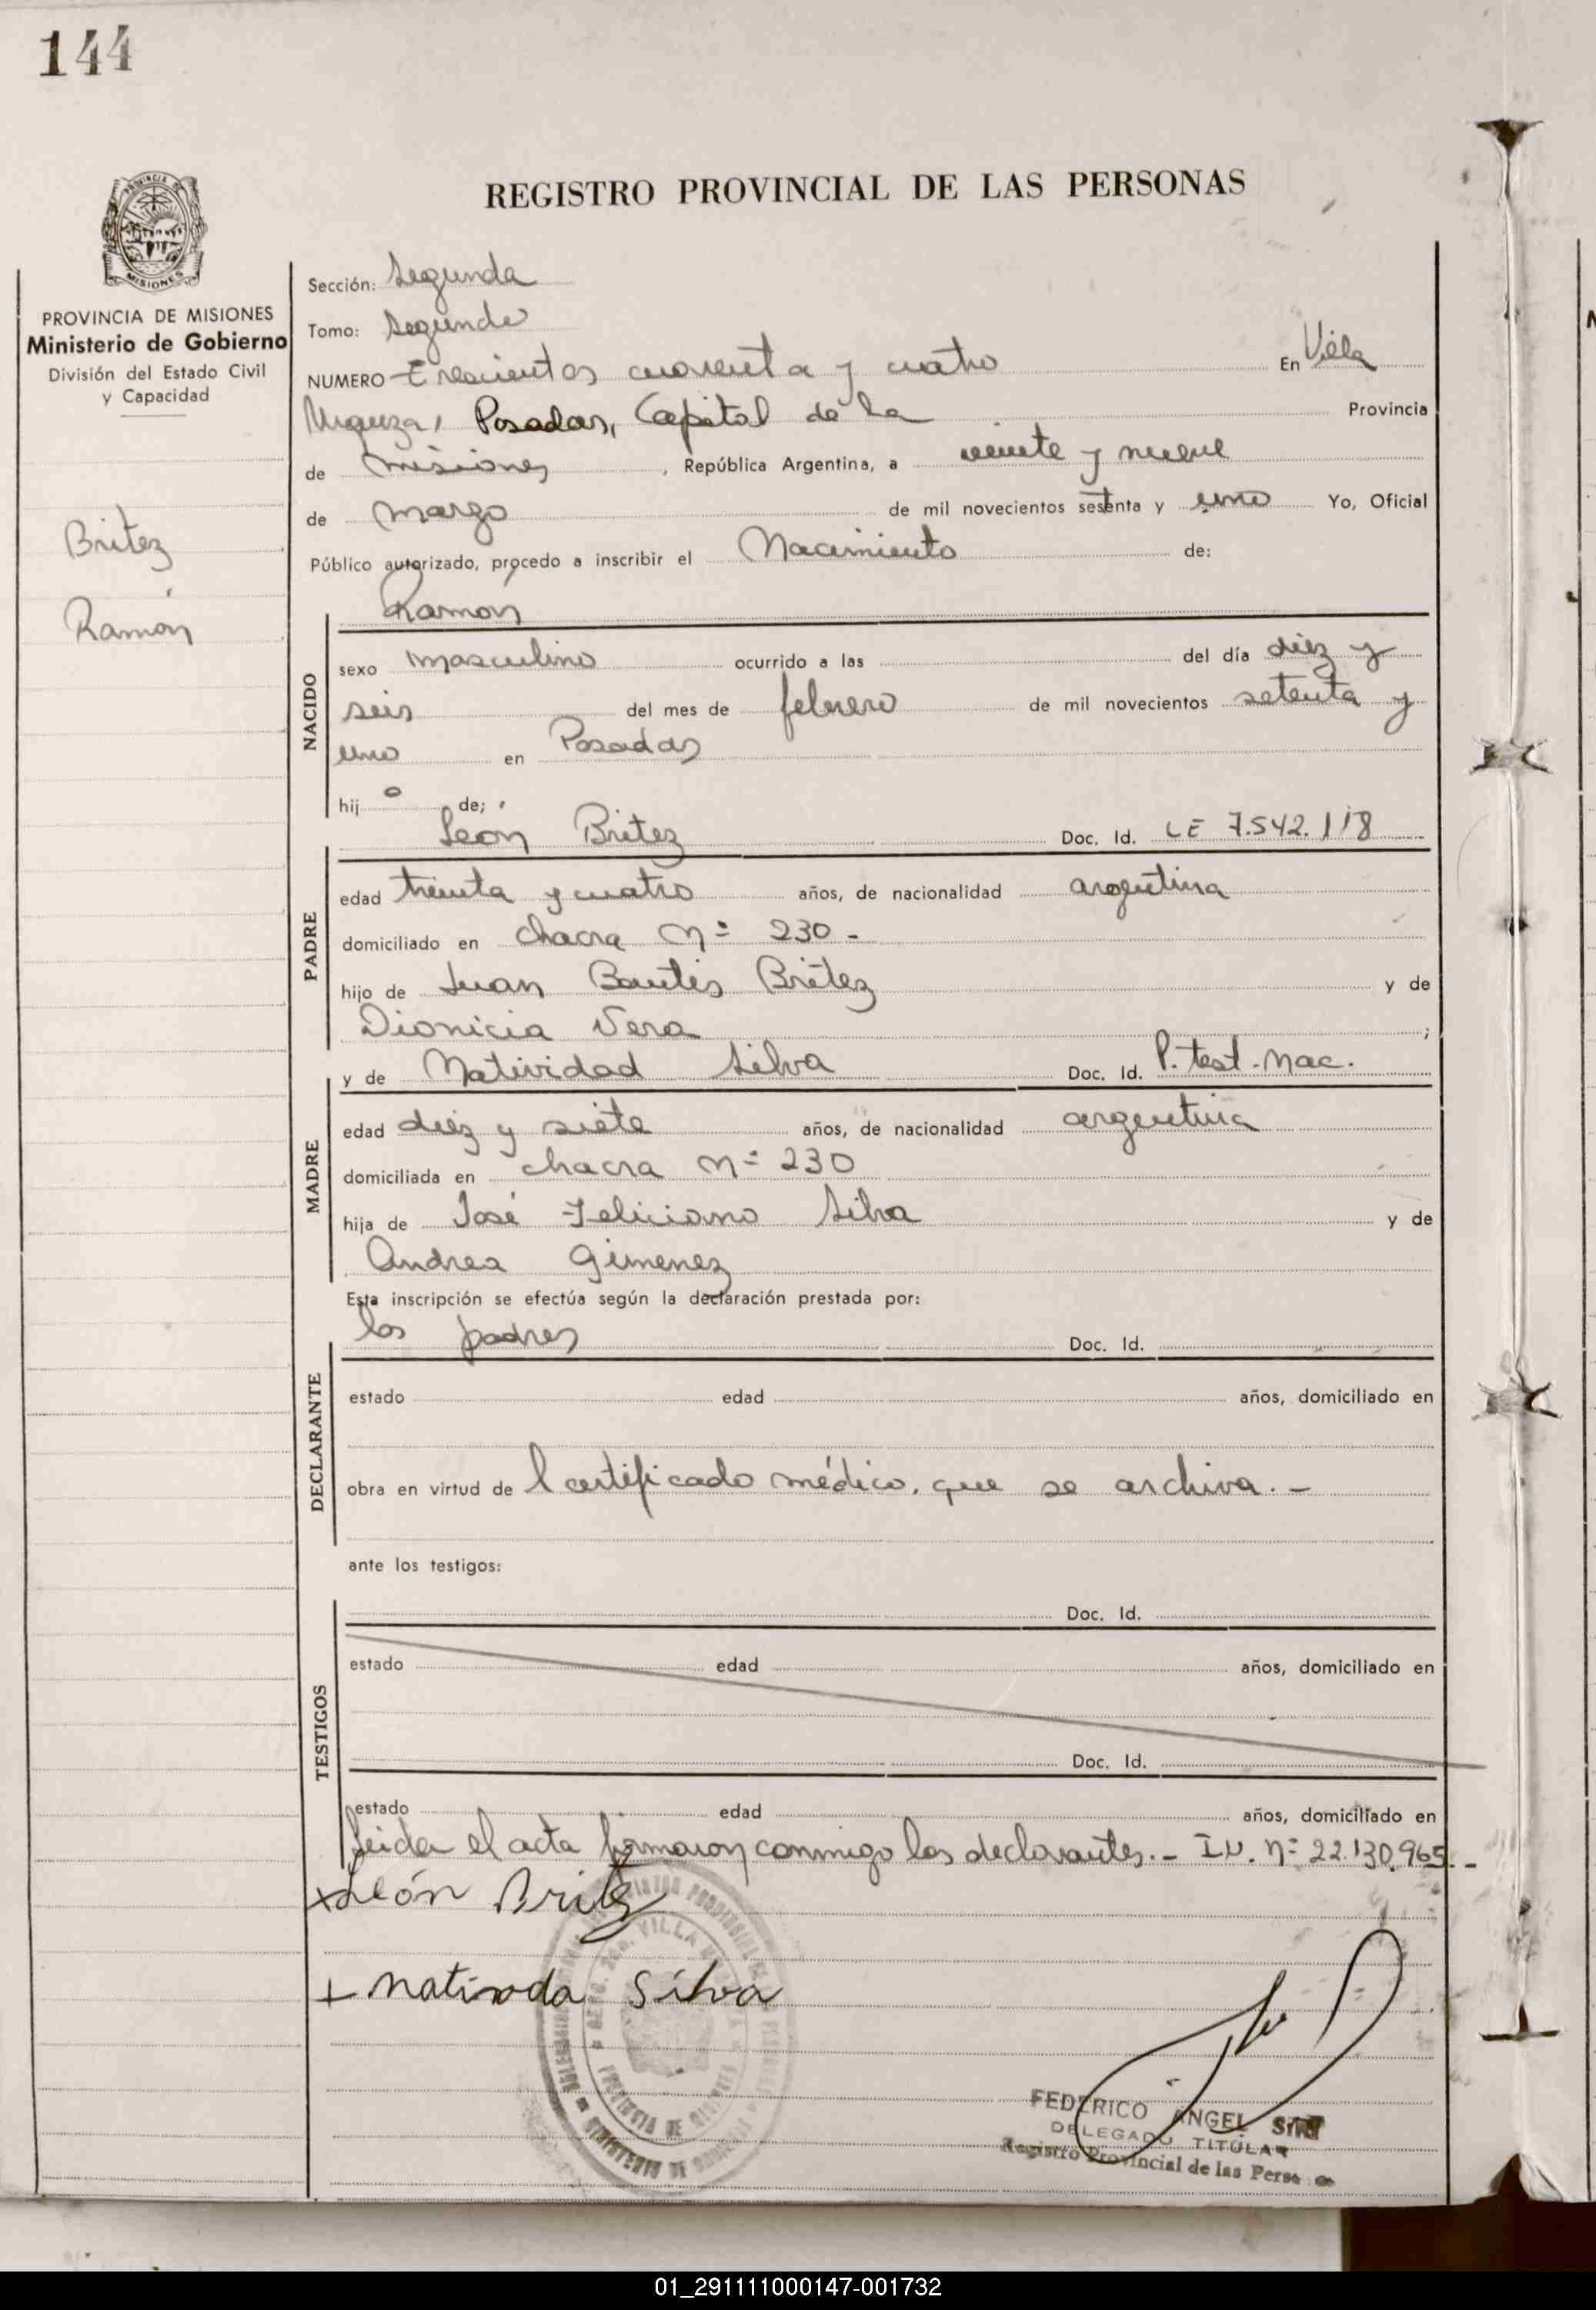 144
REGISTRO PROVINCIAL DE LAS PERSONAS
PROVINCIA DE MISIONES
Ministerio de Gobierno
División del Estado Civil
y Capacidad
Britez
Ramón
Sección: Segunda
Tomo: Segundo
NUMERO Trescientos cuarenta y cuatro En Villa
Urquiza, Posadas, Capital de la Provincia
de Misiones, República Argentina, a veinte y nueve
de marzo de mil novecientos setenta y uno Yo, Oficial
Público autorizado, procedo a inscribir el Nacimiento de:
Ramón
NACIDO
sexo masculino ocurrido a las del día diez y
seis del mes de febrero de mil novecientos setenta y
uno en Posadas
hijo de;
León Britez Doc. Id. LE 7.542.118
PADRE
edad treinta y cuatro años, de nacionalidad argentina
domiciliado en chacra Nº 230 -
hijo de Juan Bautis Britez y de
Dionicia Vera ;
y de Natividad Silva Doc. Id. P. test. Nac.
MADRE
edad diez y siete años, de nacionalidad argentina
domiciliada en chacra Nº 230
hija de José Feliciano Silva y de
Andrea Gimenez
Esta inscripción se efectúa según la declaración prestada por:
los padres Doc. Id.
DECLARANTE
estado edad años, domiciliado en
obra en virtud de l certificado médico, que se archiva. -
ante los testigos:
Doc. Id.
TESTIGOS
estado edad años, domiciliado en
Doc. Id.
estado edad años, domiciliado en
Leida el acta firmaron conmigo los declarantes. - I.N. Nº 22.130.965. -
x León Britez
+ Nativada Silva
FEDERICO ANGEL
DELEGADO TITULAR
Registro Provincial de las Perso
01_291111000147-001732